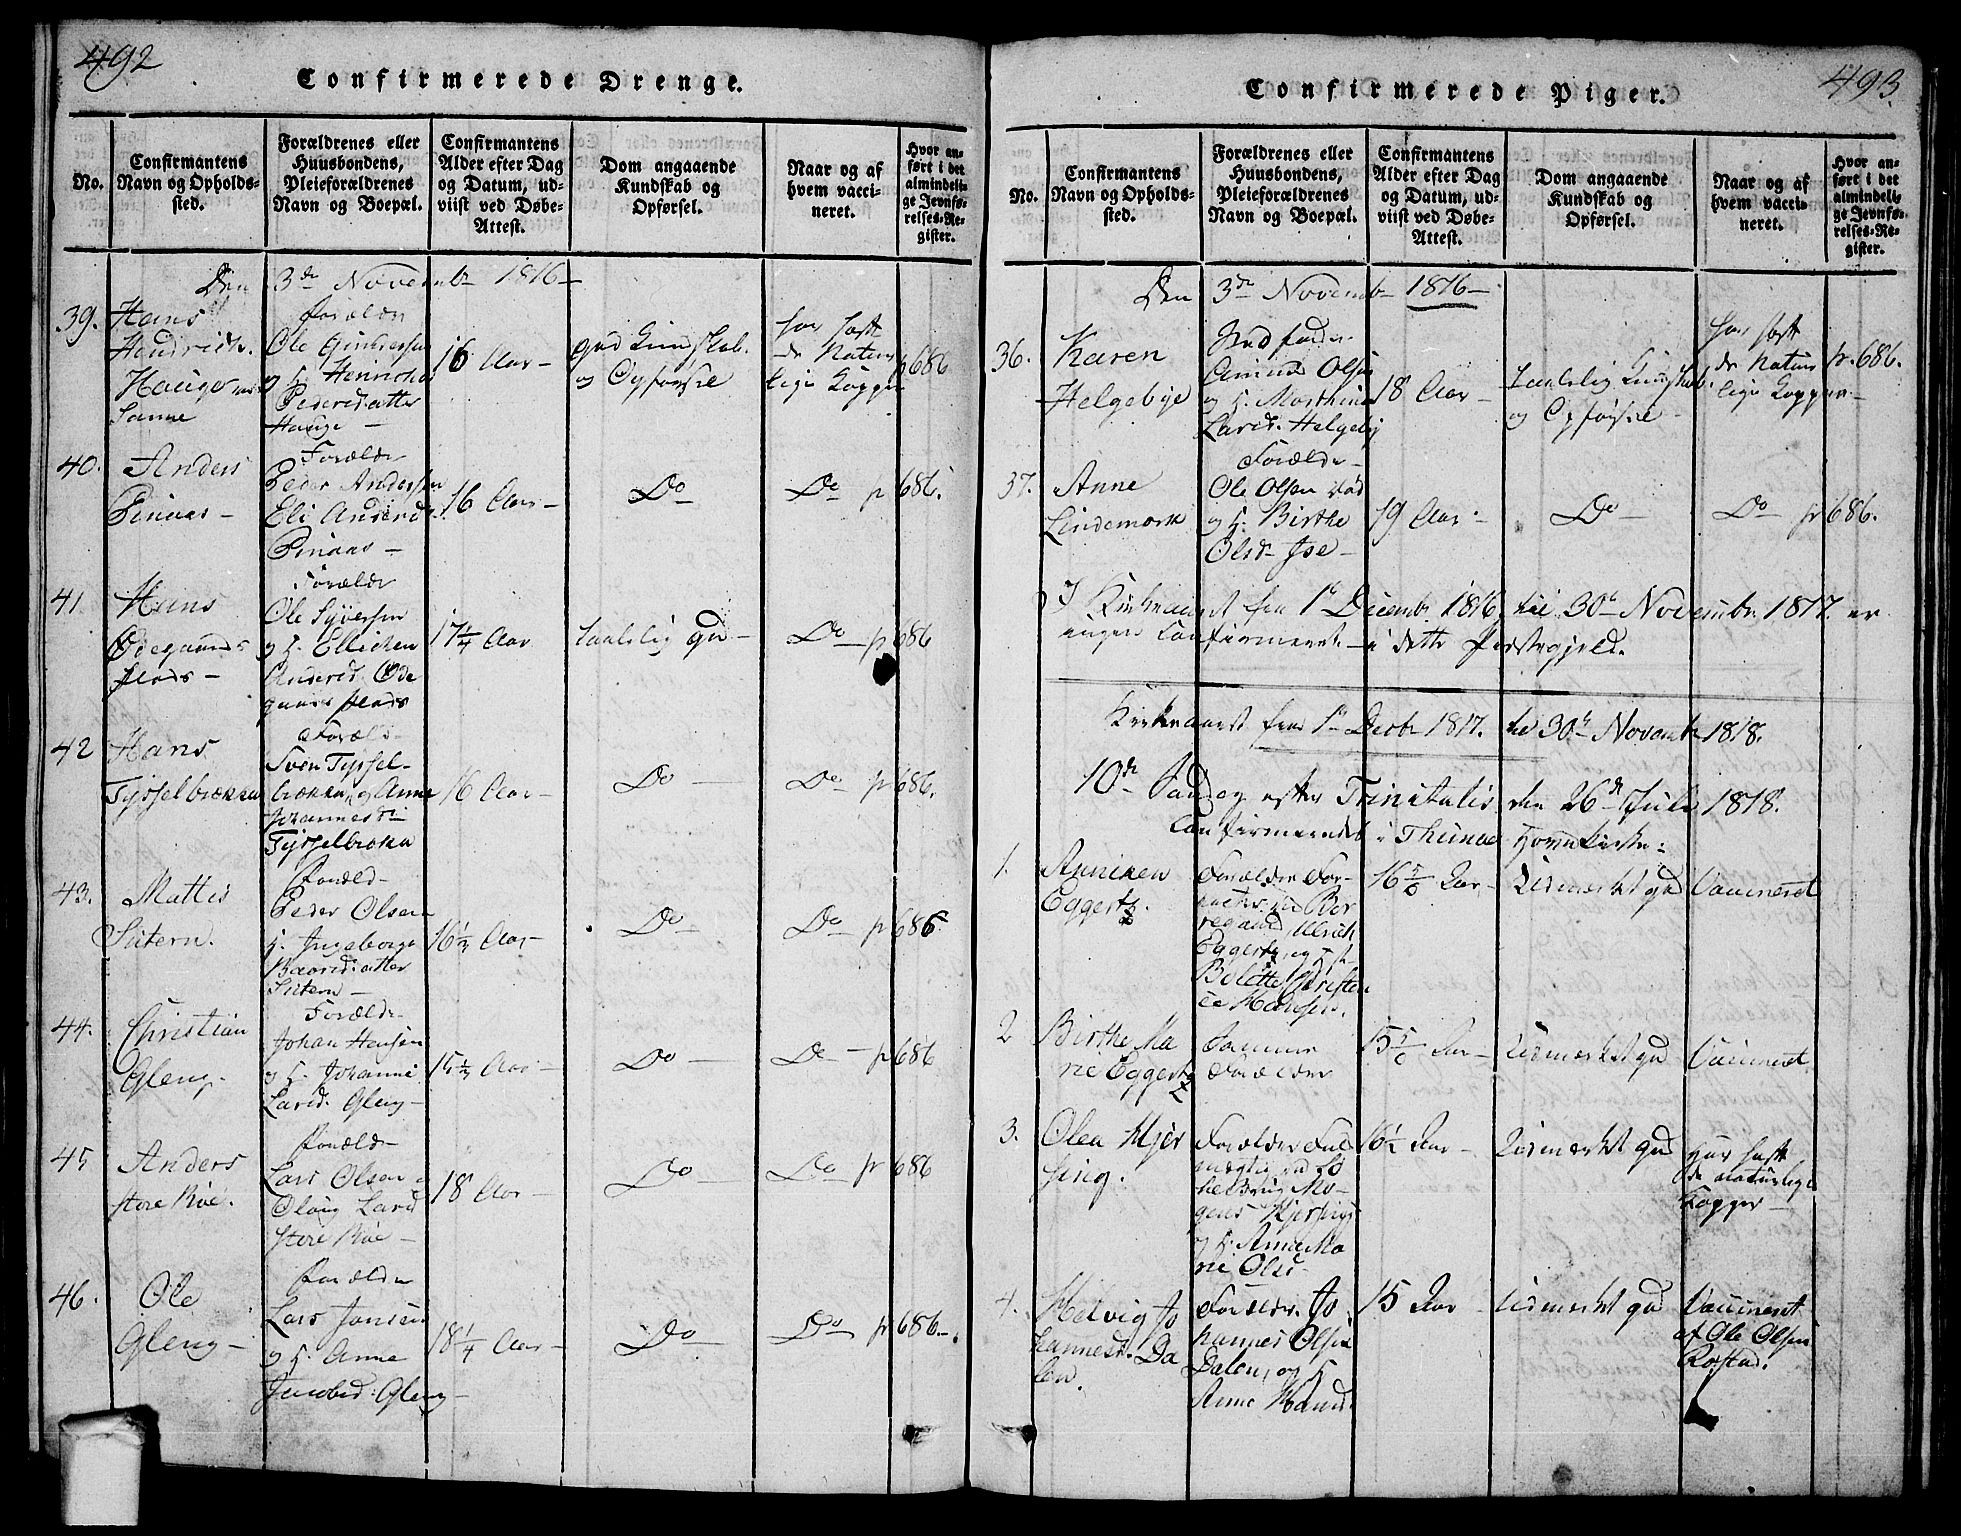 492
Confirmerede Drenge.
No.
Confirmantens
Navn og Opholds-
sted.
Forældrenes eller
Huusbondens,
Pleieforældrenes
Navn og Boepæl.
Confirmantens
Alder efter Dag
og Datum, ud-
viist ved Døbe-
Attest.
Dom angaaende
Kundskab og
Opførsel.
Naar og af
hvem vacci-
neret.
Hvor an-
ført i det
almindeli-
ge Jevnfø-
relses-Re-
gister.
Den 3de Novemb 1816
39. Hans
Hendrich
Hauger
Forældre
Ole
og H.
Pedersdatter
Hauge
16 Aar
god Kundskab
og Opførsel
har havt
de Natur
lige Kopper
p 686
40. Anders
Forældre
Peder Andersen
Eli Andersd.
16 Aar
Do
Do
p 686.
41 Hans
Ødegaards
Forældre
Ole Syversen
og H. Ellichen
Andersd. Øde
gaards
17 1/4 Aar
taalelig god
Do
p 686
42 Hans
Tysselbrækka
Foræld
Sven Tyssel-
brækka, og Anne
Johannesd
16 Aar
Do
Do
p 686.
43. Mattis
Sutern.
Foræld
Peder Olsen
H. Ingeborge
Baardsdatter
Sutern
16 1/2 Aar
Do
Do
p 686
44. Christian
Gleng.
Forældr
Johan Hansen
og H. Johanne
Larsd. Gleng
15 1/2 Aar
Do
Do
p 686
45 Anders
store Roe.
Foræld
Lars Olsen
Larsd
store Roe
18 Aar
Do
Do
p 686
46. Ole
Gleng
Forældre
Lars Jensen
og H. Anne
Jacobsd. Gleng
18 1/4 Aar
Do
Do
p 686.
493.
Confirmerede Piger.
No.
Confirmantens
Navn og Opholds-
sted.
Forældrenes eller
Huusbondens,
Pleieforældrenes
Navn og Boepæl.
Confirmantens
Alder efter Dag
og Datum, ud-
viist ved Døbe-
Attest.
Dom angaaende
Kundskab og
Opførsel.
Naar og af
hvem vacci-
neret.
Hvor an-
ført i det
almindeli-
ge Jevnfø-
relses-Re-
gister.
Den 3de Novemb 1816
36. Karen
Helgebye
Amund Olsen
og H. Marthina
Larsd. Helgeby
18 Aar
taalelig Kundskab
og Opførsel
har havt
de Natur
lige Kopper
p. 686.
37. Anne
Lindemark
Forældr
Ole Olsen
og H. Birthe
Olsd. Ise
19 Aar
Do
Do
p 686.
I Kirkeaaret fra 1te Decembr 1816 til 30te Novembr 1817 er
ingen Confirmeret i dette Præstegjeld.
Kirkeaaret fra 1te Decbr 1817. til 30te Novembr 1818.
10de Søndag efter Trinitatis den 26de Julii 1818.
Confirmerede i Thunøe Hovedkirke:
1. Anniken
Eggertz.
Forældre For-
Bor
regaard, Ulrich
Eggertz, og H
Bolette Christen
ce Hansen.
16 5/6 Aar
Udmærket god
Vaccineret
2 Birthe Ma
rie Eggertz
Samme
Forældre
15 5/6 Aar
Udmærket god
Vaccineret.
3. Olea Hjer
sing.
Forældre Ful
mægtig
Mo-
gens Hjersing
og H. Anne Ma
rie Olsd
16 1/2 Aar
Udmærket god
Har havt
de naturlige
Kopper
4. Helvig Jo
hannesd. Da
len.
Forældre. Jo
hannes Olsen
Dalen, og H
Anne Hansd.
15 Aar
Udmærket god
Vaccineret
af Ole Olsen
Rostad.